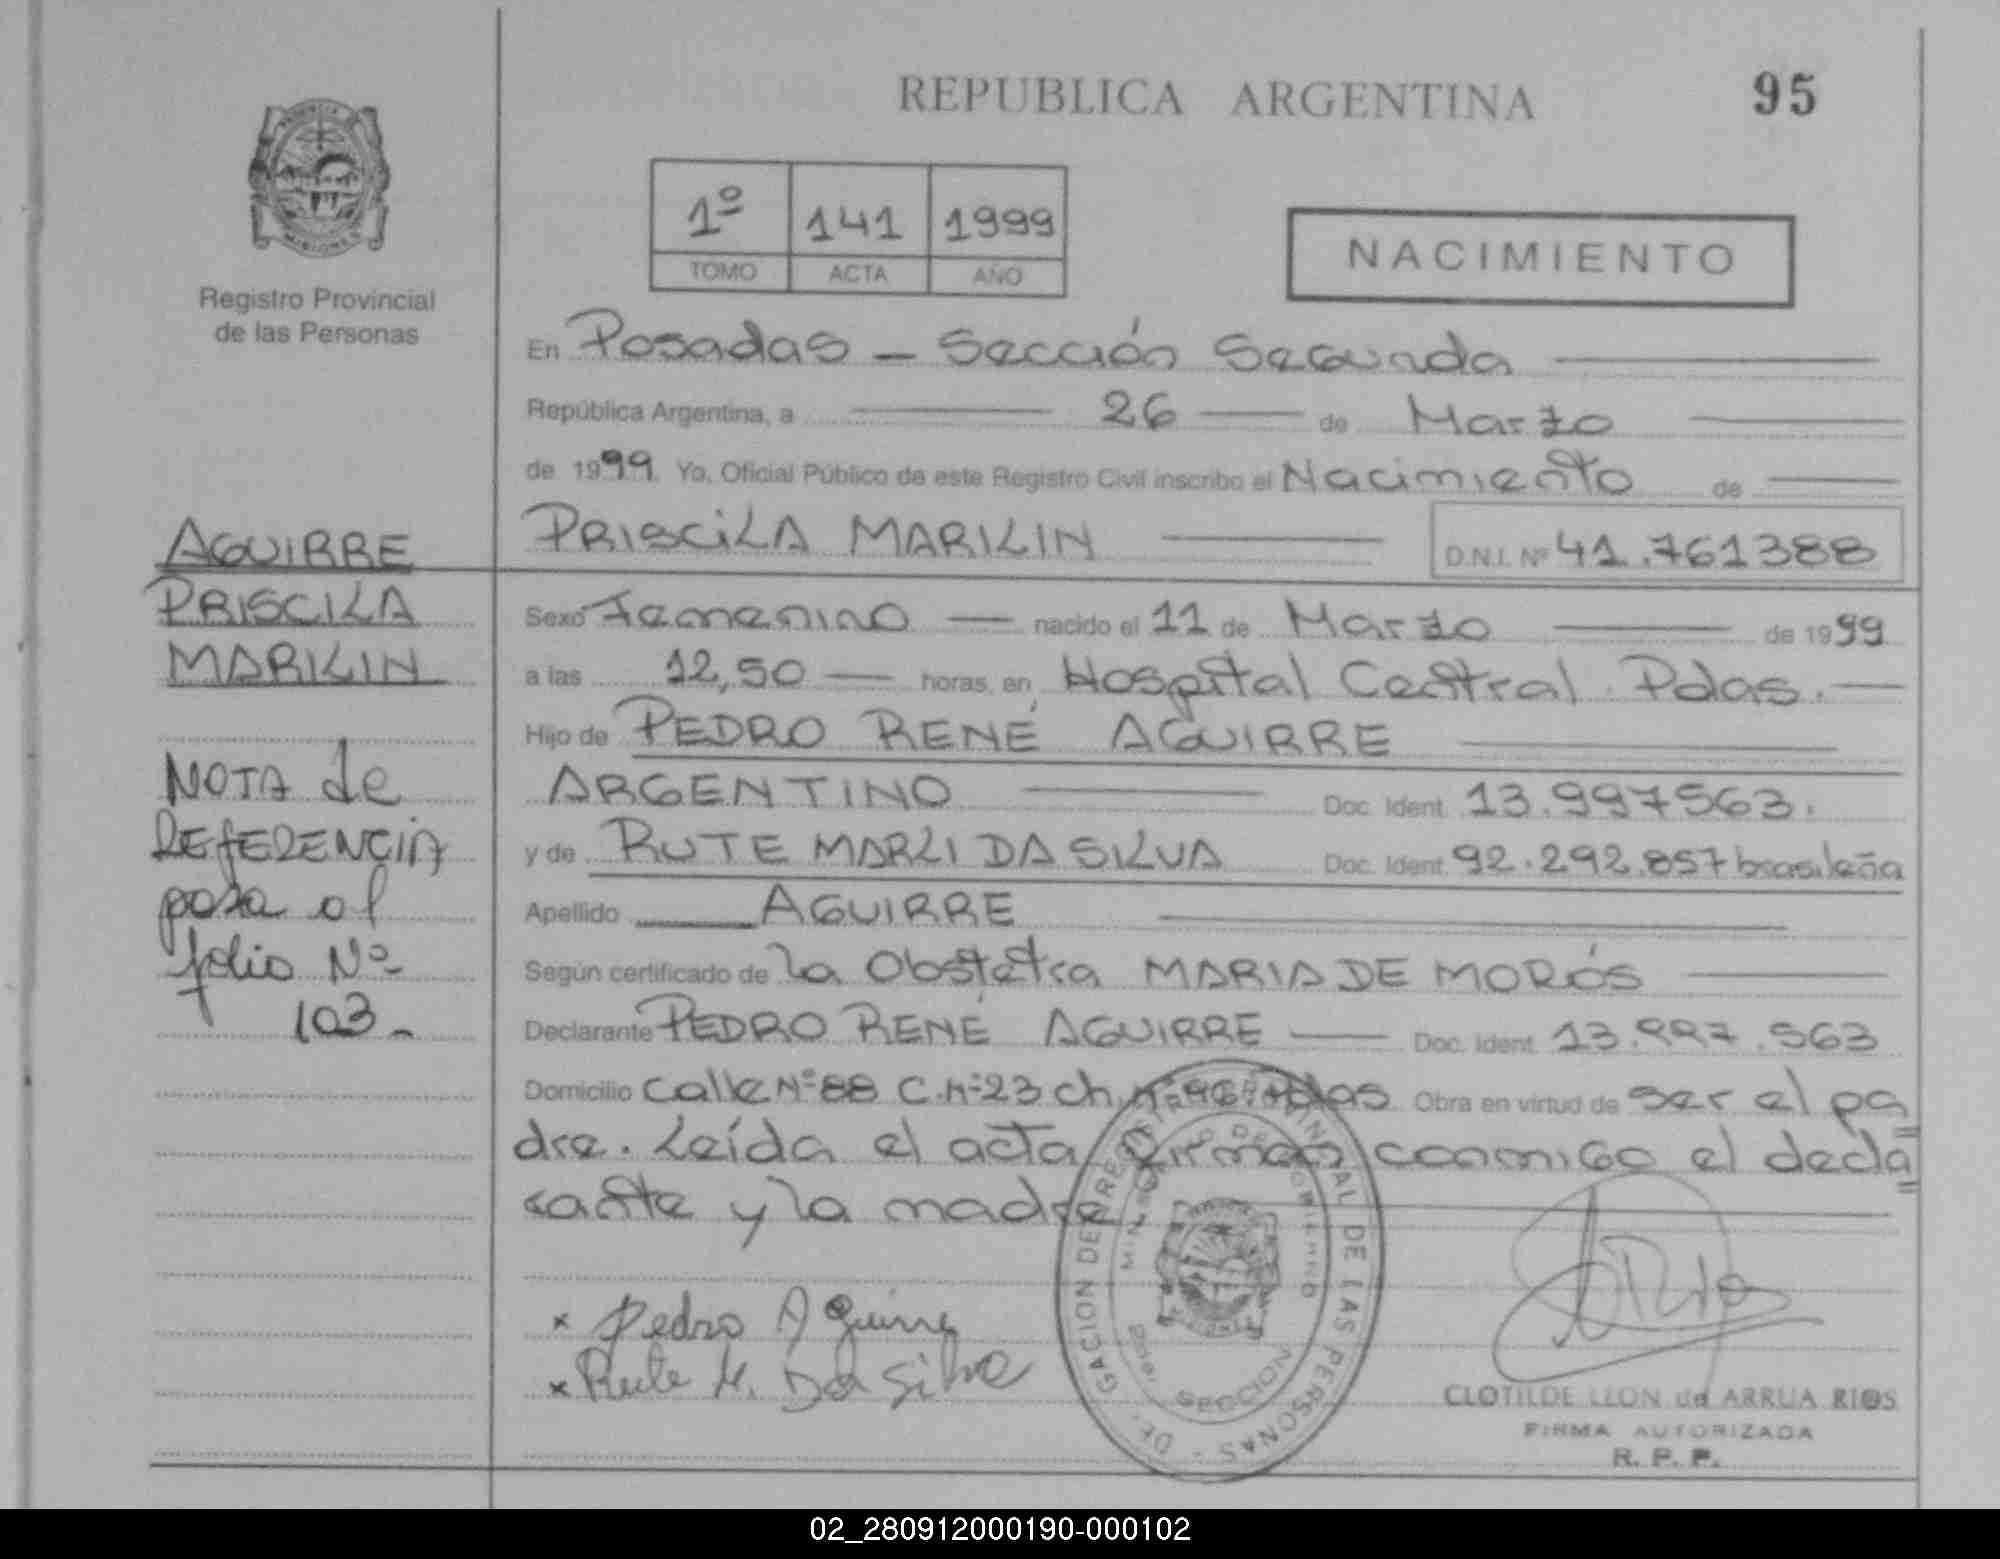 REPUBLICA ARGENTINA
95
Registro Provincial
de las Personas
1º 141 1999
TOMO ACTA AÑO
NACIMIENTO
En Posadas - Sección Segunda
República Argentina, a 26 de Marzo
de 1999. Yo, Oficial Público de este Registro Civil inscribo el Nacimiento de
PRISCILA MARILIN
D.N.I. Nº 41.761388
AGUIRRE
PRISCILA
MARILIN
NOTA de
REfERENCIA
pasa al
folio Nº
103-
Sexo Femenino nacido el 11 de Marzo de 1999
a las 12,50 horas, en Hospital Central Pdas.
Hijo de PEDRO RENÉ AGUIRRE
ARGENTINO Doc. Ident. 13.997563.
y de RUTE MARLI DA SILVA Doc. Ident. 92.292.857 brasileña
Apellido AGUIRRE
Según certificado de la Obstetra MARIA DE MORÓS
Declarante PEDRO RENÉ AGUIRRE Doc. Ident. 13.997.563
Domicilio Calle Nº 88 C.Nº 23 Ch. Pdas Obra en virtud de ser el pa
dre. Leída el acta firman conmigo el decla
rante y la madre
x Pedro Aguirre
x Rute M. Da Silva
DELEGACION DE REGISTRO PROVINCIAL DE LAS PERSONAS
MINISTERIO DE GOBIERNO
SECCION
MISIONES
CLOTILDE LEON de ARRUA RIOS
FIRMA AUTORIZADA
R. P. P.
02_280912000190-000102